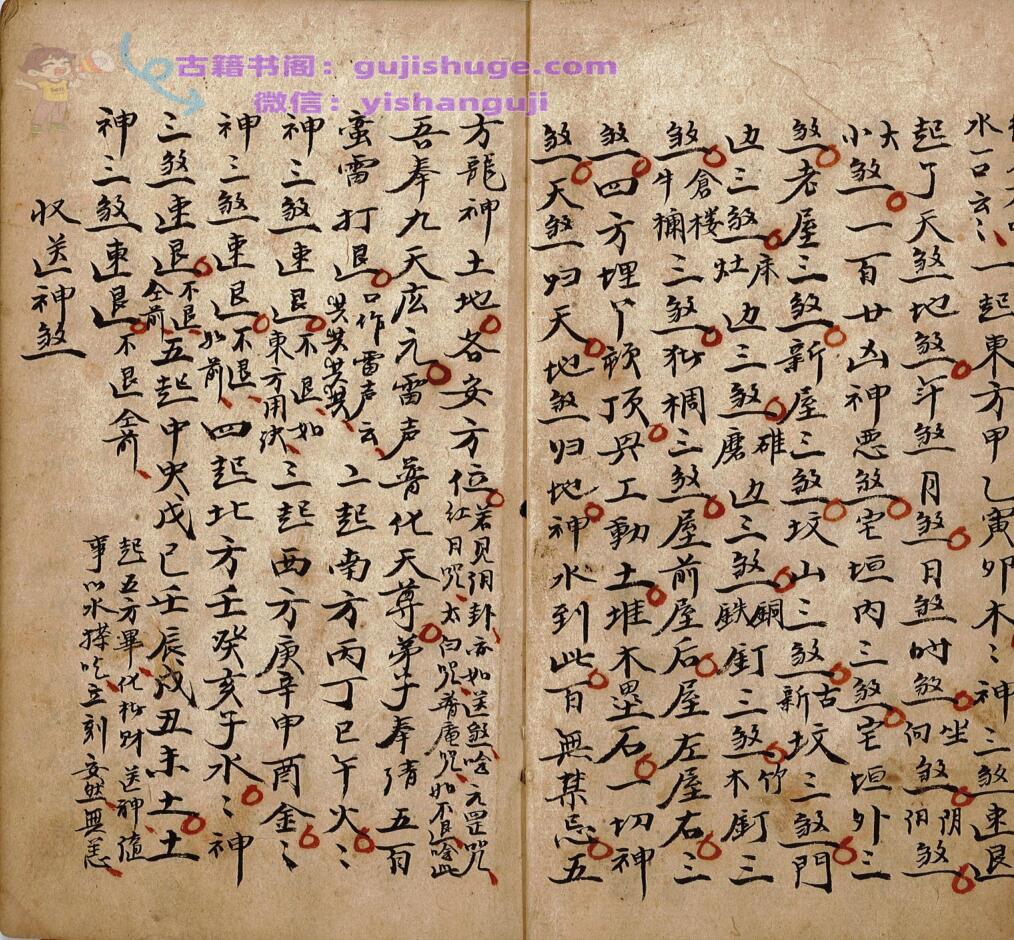 古籍书阁：gujishuge.com
微信：yishanguji
水一口云〻一起東方甲乙寅卯木〻神三煞速退
起了天煞地煞年煞月煞日煞时煞坐向煞阴阳煞
大小煞一百廿凶神恶煞宅垣内三煞宅垣外三
煞老屋三煞新屋三煞坟山三煞新古坟三煞門
边三煞床灶边三煞碓磨边三煞銅鉄釘三煞竹木釘三
煞倉楼牛欄三煞猪椆三煞屋前屋后屋左屋右三
煞四方埋丫頋頂興工動土堆木壘石一切神
煞天煞归天地煞归地神水到此百無禁忌五
方龍神土地各安方位若見陽卦亦如送煞唸元罡咒红日咒太白咒普庵咒如不退唸此
吾奉九天応元雷声普化天尊弟子奉請五百
蛮雷打退口作雷声云共共共共二起南方丙丁巳午火〻
神三煞速退不退如東方用决三起西方庚辛申酉金〻
神三煞速退不退如前四起北方壬癸亥子水〻神
三煞速退不退仝前五起中央戊己壬辰戌丑未土土
神三煞速退不退仝前起五方畢化紙財送神隨事以水噀吃立刻安然無恙
收送神煞